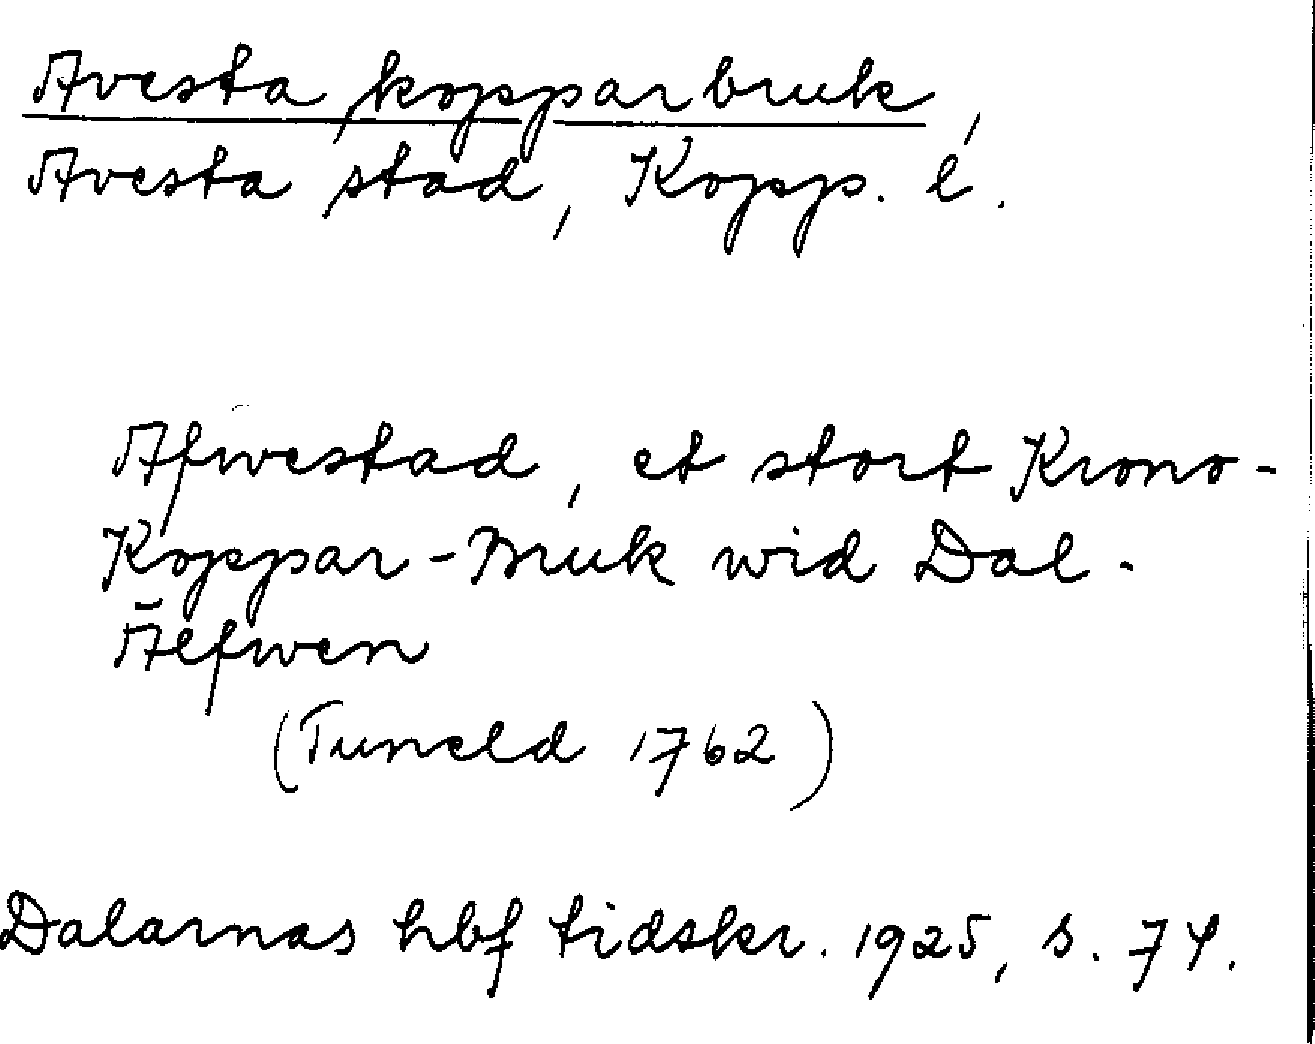 Avesta kopparbruk
Avesta stad, Kopp. l.
Afwestad, et stort Krono-
Koppar-Bruk wid Dal-
Älfwen
(Tuneld 1762)
Dalarnas hbf tidskr. 1925, s. 74.